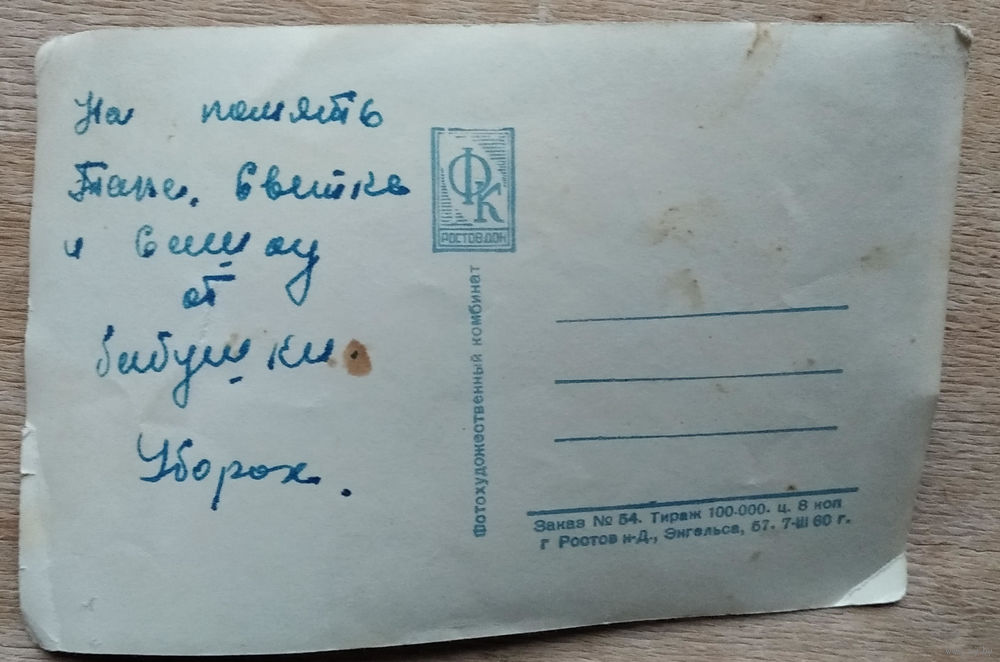 На память
Тане, Светке
и Сашку
от
бабушки.
Уборок.
ФК
РОСТОВ ДОН
Фотохудожественный комбинат
Заказ № 54. Тираж 100.000. ц. 8 коп
г Ростов н-Д., Энгельса, 57. 7-III 60 г.